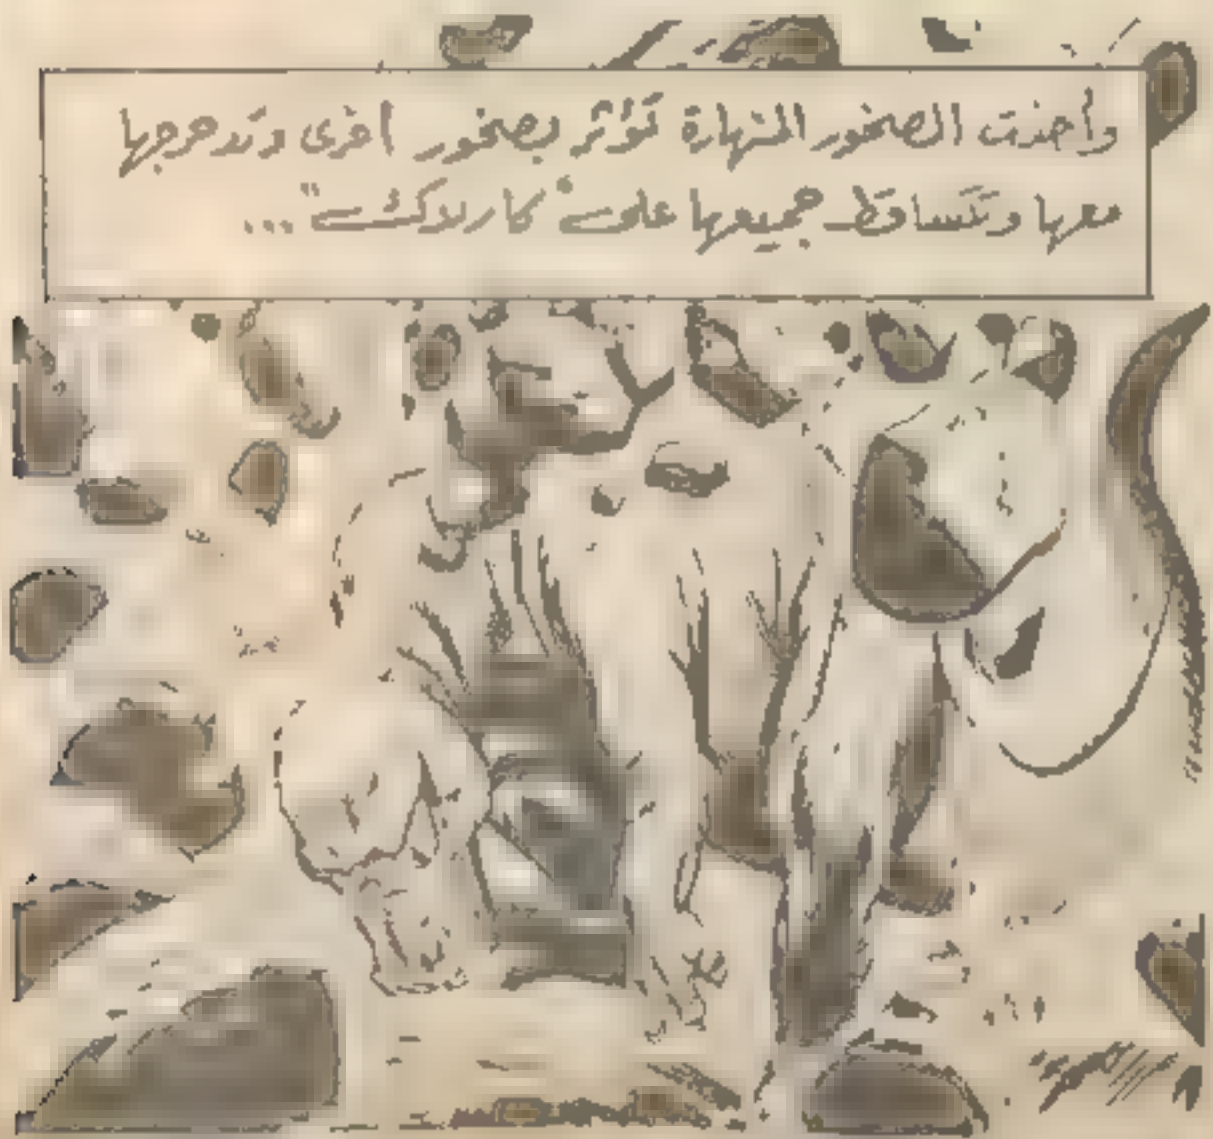 وأخذت الصخور المنهارة تؤثر بصخور أخرى وتدحرجها
معها وتتساقط جميعها على "كاربوكث" ...